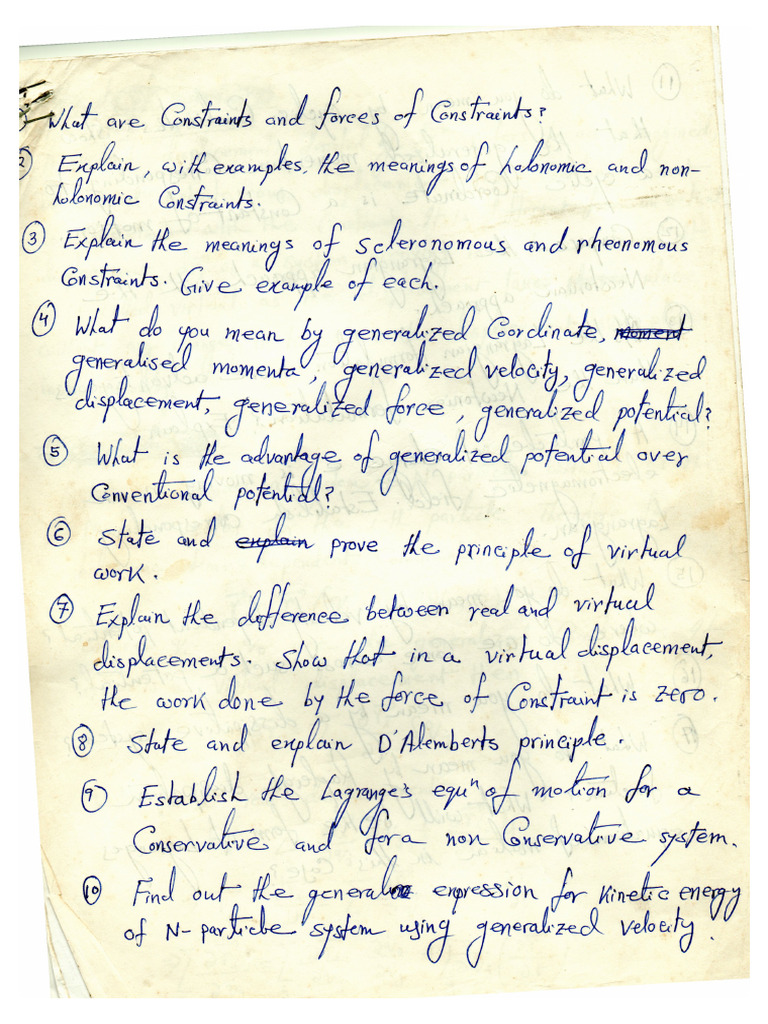 What are Constraints and forces of Constraints?
2 Explain, with examples, the meanings of holonomic and non-
holonomic Constraints.
3 Explain the meanings of scleronomous and rheonomous
Constraints. Give example of each.
4 What do you mean by generalized Coordinate, moment
generalised momenta, generalized velocity, generalized
displacement, generalized force, generalized potential?
5 What is the advantage of generalized potential over
Conventional potential?
6 State and explain prove the principle of virtual
work.
7 Explain the difference between real and virtual
displacements. Show that in a virtual displacement,
the work done by the force of Constraint is zero.
8 State and explain D'Alemberts principle.
9 Establish the Lagrange's equⁿ of motion for a
Conservative and for a non Conservative system.
10 Find out the general expression for kinetic energy
of N-particle system using generalized velocity.